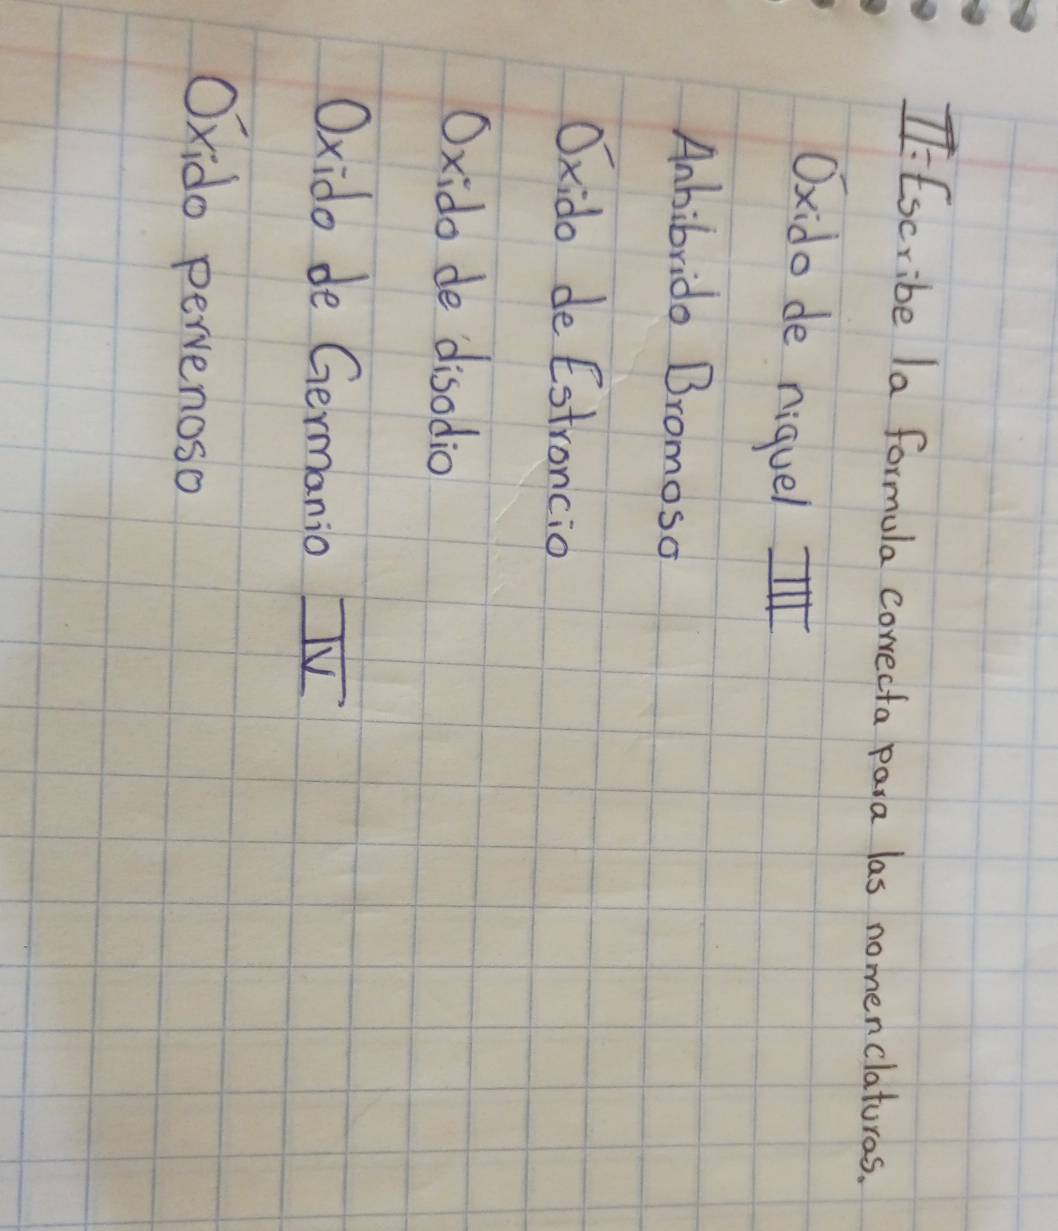 II: Escribe la formula correcta para las nomenclaturas.
Óxido de niquel III
Anhibrido Bromoso
Óxido de Estroncio
Oxido de disodio
Oxido de Germanio IV
Óxido pervenoso